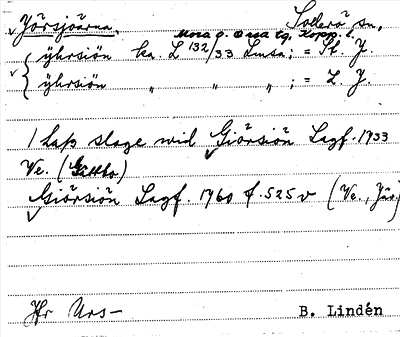 Jörsjöarna, Sollerö sn,
Mora o. Orsa tg, Kopp. l.
yhrsiön ka. L 132/33 Lmsa; = St. J.
yhrsiön " " " ; = L. J.
1 hap slage wid Giörsiön Lagf. 1733
Ve. (
Giörsiön Lagf. 1760 f. 525 v (Ve.,
Jfr Urs-
B. Lindén